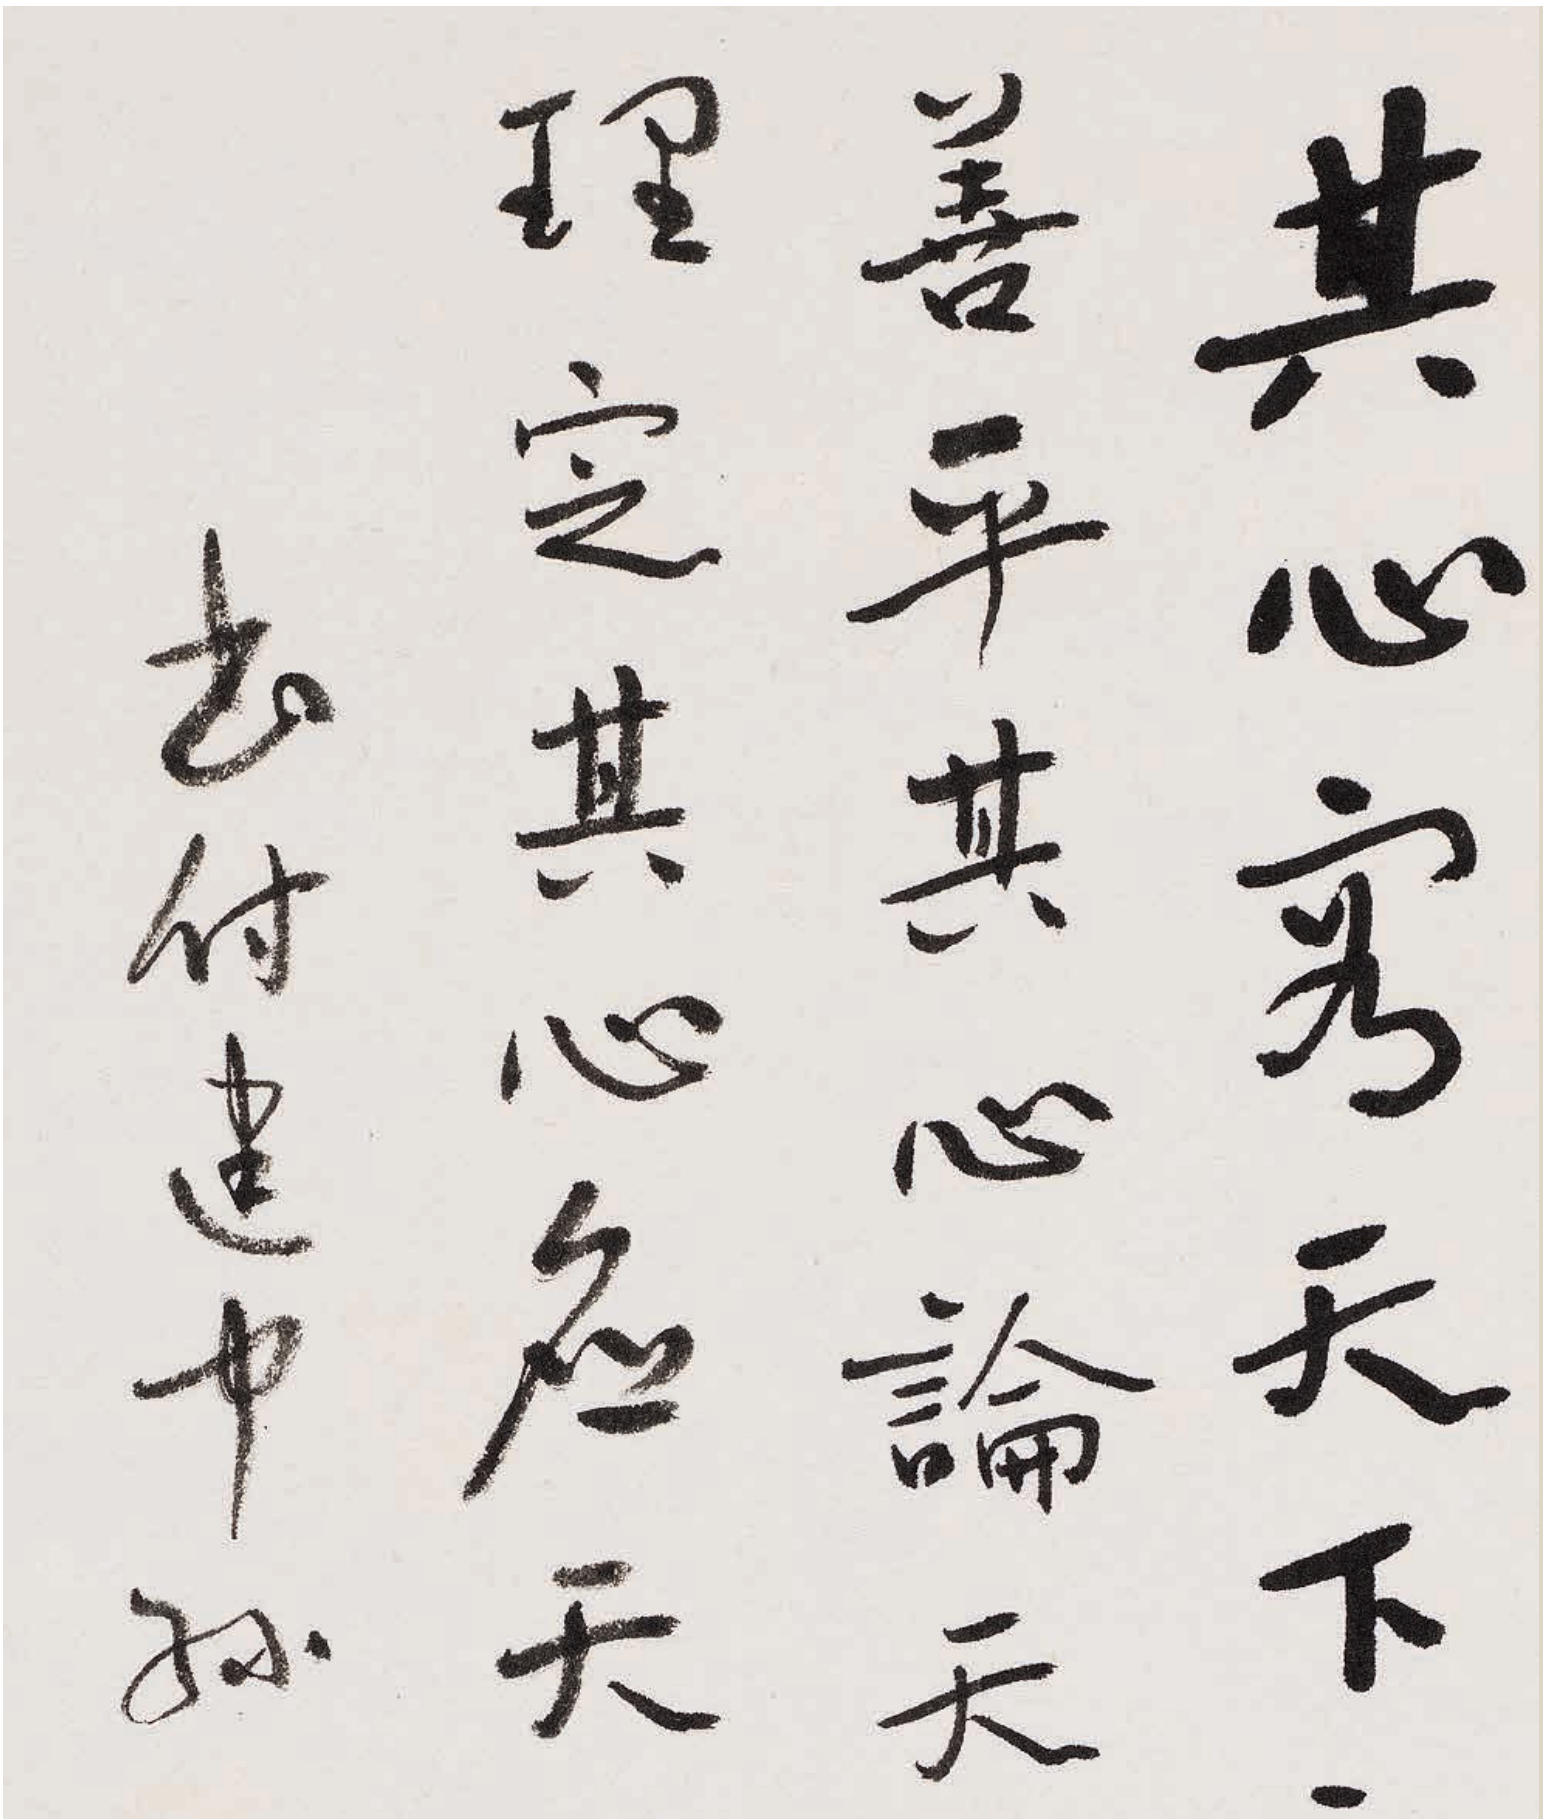 其心容天下
善平其心論天
理定其心應天
書付建中孫